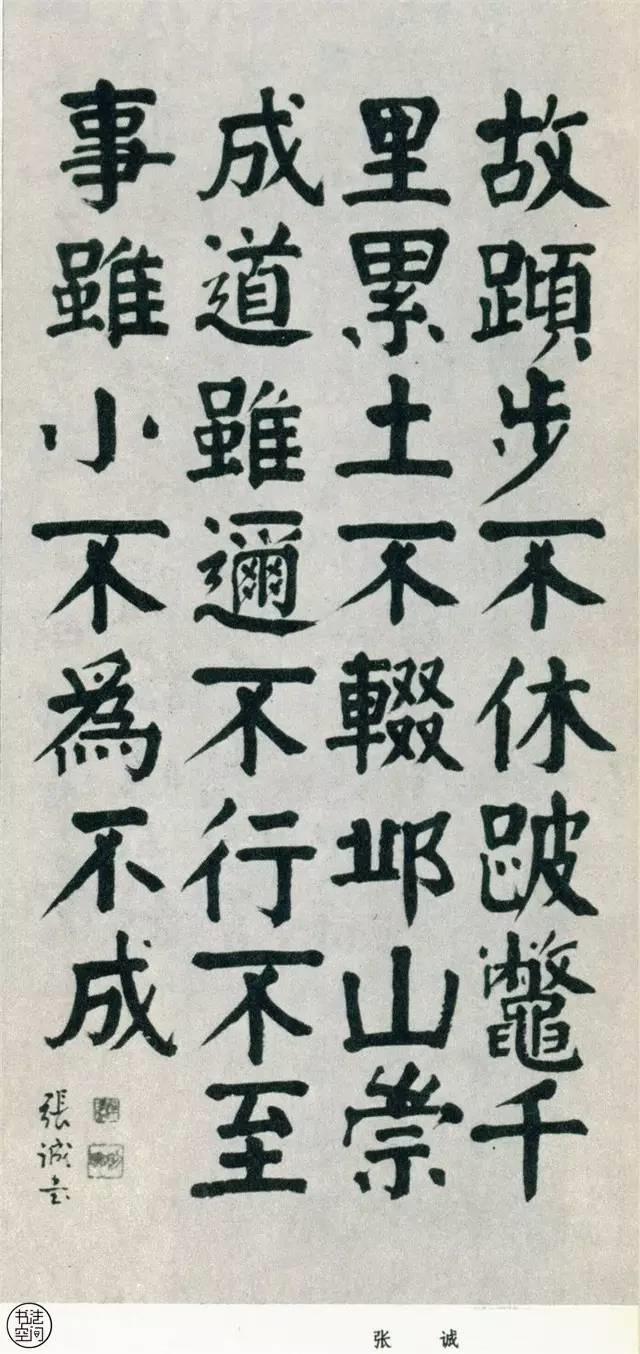 故蹞步不休跛鼈千
里累土不輟邱山崇
成道雖邇不行不至
事雖小不爲不成
張诚书
书法空间
张 诚